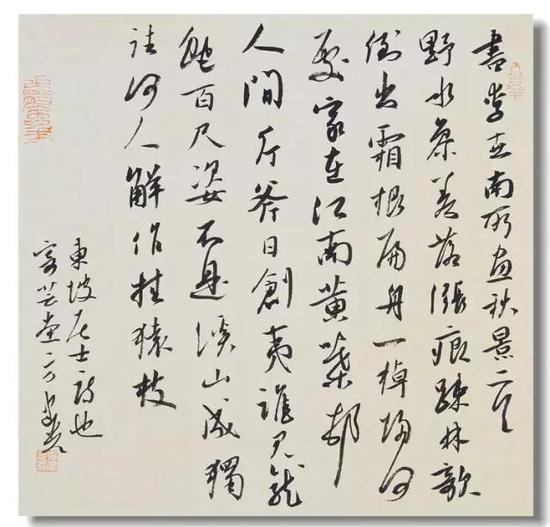 書李世南所畫秋景二首
野水參差落漲痕疎林欹
倒出霜根扁舟一棹歸何
處家在江南黃葉邨
人間斤斧日創夷誰見龍
蛇百尺姿不是溪山成獨
往何人解作挂猿枝
東坡居士詩也